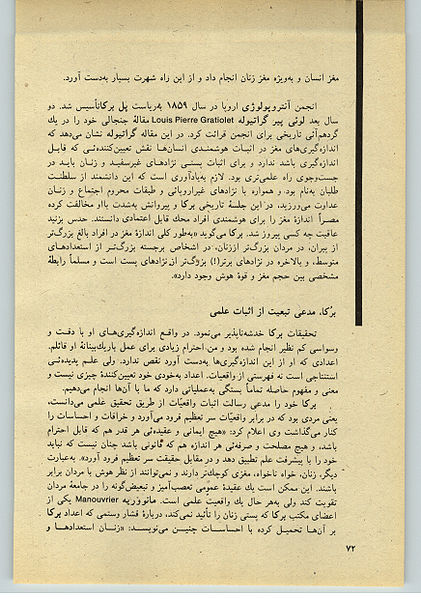 مغز انسان و به‌ویژه مغز زنان انجام داد و از این راه شهرت بسیار به‌دست آورد.
انجمن آنتروپولوژی اروپا در سال ۱۸۵۹ به‌ریاست پل برکاتأسیس شد. دو
سال بعد لوئی پیر گراتیوله Louis Pierre Gratiolet مقالهٔ جنجالی خود را در یك
گردهم‌آئی تاریخی برای انجمن قرائت کرد. در این مقاله گراتیوله نشان می‌دهد که
اندازه‌گیری‌های مغز در اثبات هوشمندی انسان‌ها نقش تعیین‌کننده‌ئی که قابل
اندازه‌گیری باشد ندارد و برای اثبات پستی نژادهای غیرسفید و زنان باید در
جست‌وجوی راه علمی‌تری بود. لازم به‌یادآوری است که این دانشمند از سلطنت
طلبان به‌نام بود. و همواره با نژادهای غیراروپائی و طبقات محروم اجتماع و زنان
عداوت می‌ورزید. در این جلسهٔ تاریخی برکا و پیروانش به‌شدت بااو مخالفت کرده
مصراً اندازهٔ مغز را برای هوشمندی افراد محك قابل اعتمادی دانستند. حدس بزنید
عاقبت چه کسی پیروز شد. برکا می‌گوید «به‌طور کلی اندازهٔ مغز در افراد بالغ بزرگ‌تر
از پیران، در مردان بزرگ‌تر اززنان، در اشخاص برجسته بزرگ‌تر از استعدادهای
متوسط، و بالاخره در نژادهای برتر(!) بزرگ‌تر از نژادهای پست است و مسلماً رابطهٔ
مشخصی بین حجم مغز و قوهٔ هوش وجود دارد».
برکا، مدعی تبعیت از اثبات علمی
تحقیقات برکا خدشه‌ناپذیر می‌نمود. در واقع اندازه‌گیری‌های او با دقت و
وسواسی کم نظیر انجام شده بود و من احترام زیادی برای عمل باریك‌بینانهٔ او قائلم.
اعدادی که او از این اندازه‌گیری‌ها به‌دست آورد نقص ندارد. ولی علم پدیده‌ئی
استنتاجی است نه فهرستی از واقعیات. اعداد به‌خودی خود تعیین‌کنندهٔ چیزی نیست و
معنی و مفهوم حاصله تماماً بستگی به‌عملیاتی دارد که ما با آن‌ها انجام می‌دهیم.
برکا خود را مدعی رسالت اثبات واقعیّات از طریق تحقیق علمی می‌دانست،
یعنی مردی بود که در برابر واقعیّات سر تعظیم فرود می‌آورد و خرافات و احساسات را
کنار می‌گذاشت وی اعلام کرد: «هیچ ایمانی و عقیده‌ئی هر قدر هم که قابل احترام
باشد، و هیچ مصلحت و صرفه‌ئی هر اندازه هم که قانونی باشد چنان نیست که نباید
خود را با پیشرفت علم تطبیق دهد و در مقابل حقیقت سر تعظیم فرود آورد». به‌عبارت
دیگر، زنان، خواه ناخواه، مغزی کوچك‌تر دارند و نمی‌توانند از نظر هوش با مردان برابر
باشند. این ممکن است یك عقیدهٔ عمومی تعصب‌آمیز و تبعیض‌گونه را در جامعهٔ مردان
تقویت کند ولی به‌هر حال یك واقعیت علمی است. مانووریه Manouvrier یکی از
اعضای مکتب برکا که پستی زنان را تأئید نمی‌کند، دربارهٔ فشار وستمی که اعداد برکا
بر آن‌ها تحمیل کرده با احساسات چنین می‌نویسد: «زنان استعدادها و
۷۲